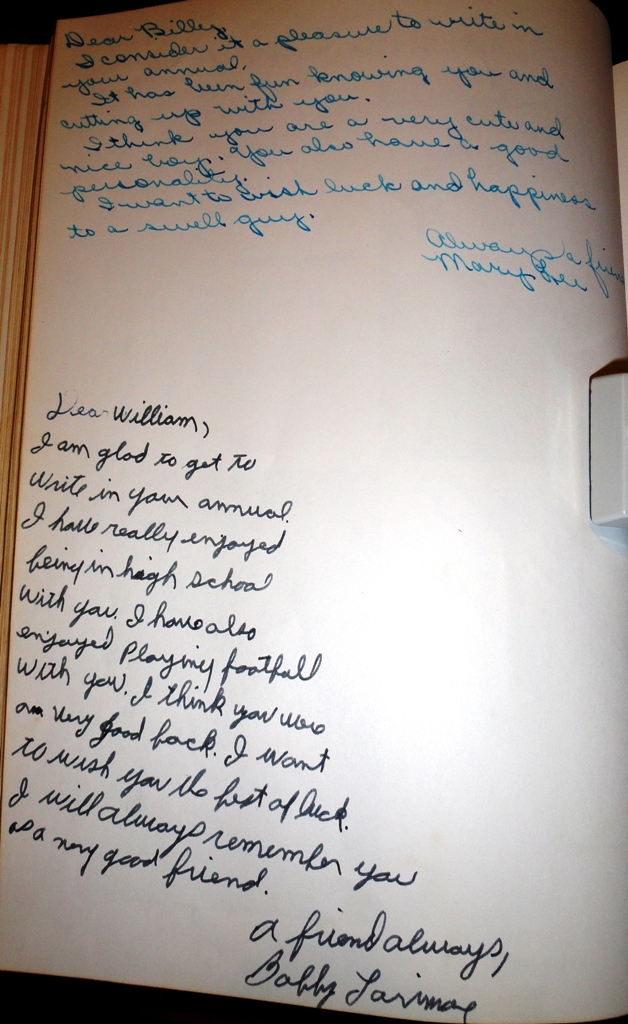 Dear Billy,
I consider it a pleasure to write in
your annual.
It has been fun knowing you and
cutting up with you.
I think you are a very cute and
nice boy. You also have a good
personality.
I want to wish luck and happiness
to a swell guy.
Always a friend
Mary Lee
Dear William,
I am glad to get to
write in your annual.
I have really enjoyed
being in high school
with you. I have also
enjoyed playing football
with you. I think you were
a very good back. I want
to wish you the best of luck.
I will always remember you
as a very good friend.
A friend always,
Bobby